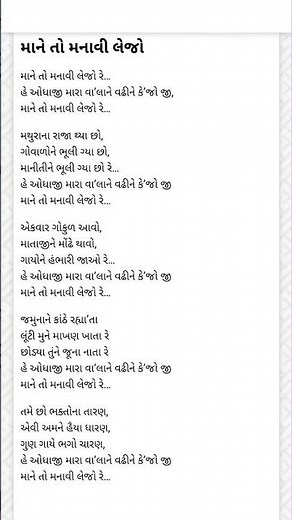 માને તો મનાવી લેજો
માને તો મનાવી લેજો રે...
હે ઓધાજી મારા વા'લાને વઢીને કે'જો જી,
માને તો મનાવી લેજો રે...
મથુરાના રાજા થ્યા છો,
ગોવાળોને ભૂલી ગ્યા છો,
માનીતીને ભૂલી ગ્યા છો રે...
હે ઓધાજી મારા વા'લાને વઢીને કે'જો જી
માને તો મનાવી લેજો રે...
એકવાર ગોકુળ આવો,
માતાજીને મોંઢે થાવો,
ગાયોને હંભારી જાઓ રે...
હે ઓધાજી મારા વા'લાને વઢીને કે'જો જી
માને તો મનાવી લેજો રે...
જમુનાને કાંઠે રહ્યા'તા
લૂંટી મુને માખણ ખાતા રે
છોડ્યા તુંને જૂના નાતા રે
હે ઓધાજી મારા વા'લાને વઢીને કે'જો જી
માને તો મનાવી લેજો રે...
તમે છો ભક્તોના તારણ,
એવી અમને હૈયા ધારણ,
ગુણ ગાયે ભગો ચારણ,
હે ઓધાજી મારા વા'લાને વઢીને કે'જો જી
માને તો મનાવી લેજો રે...